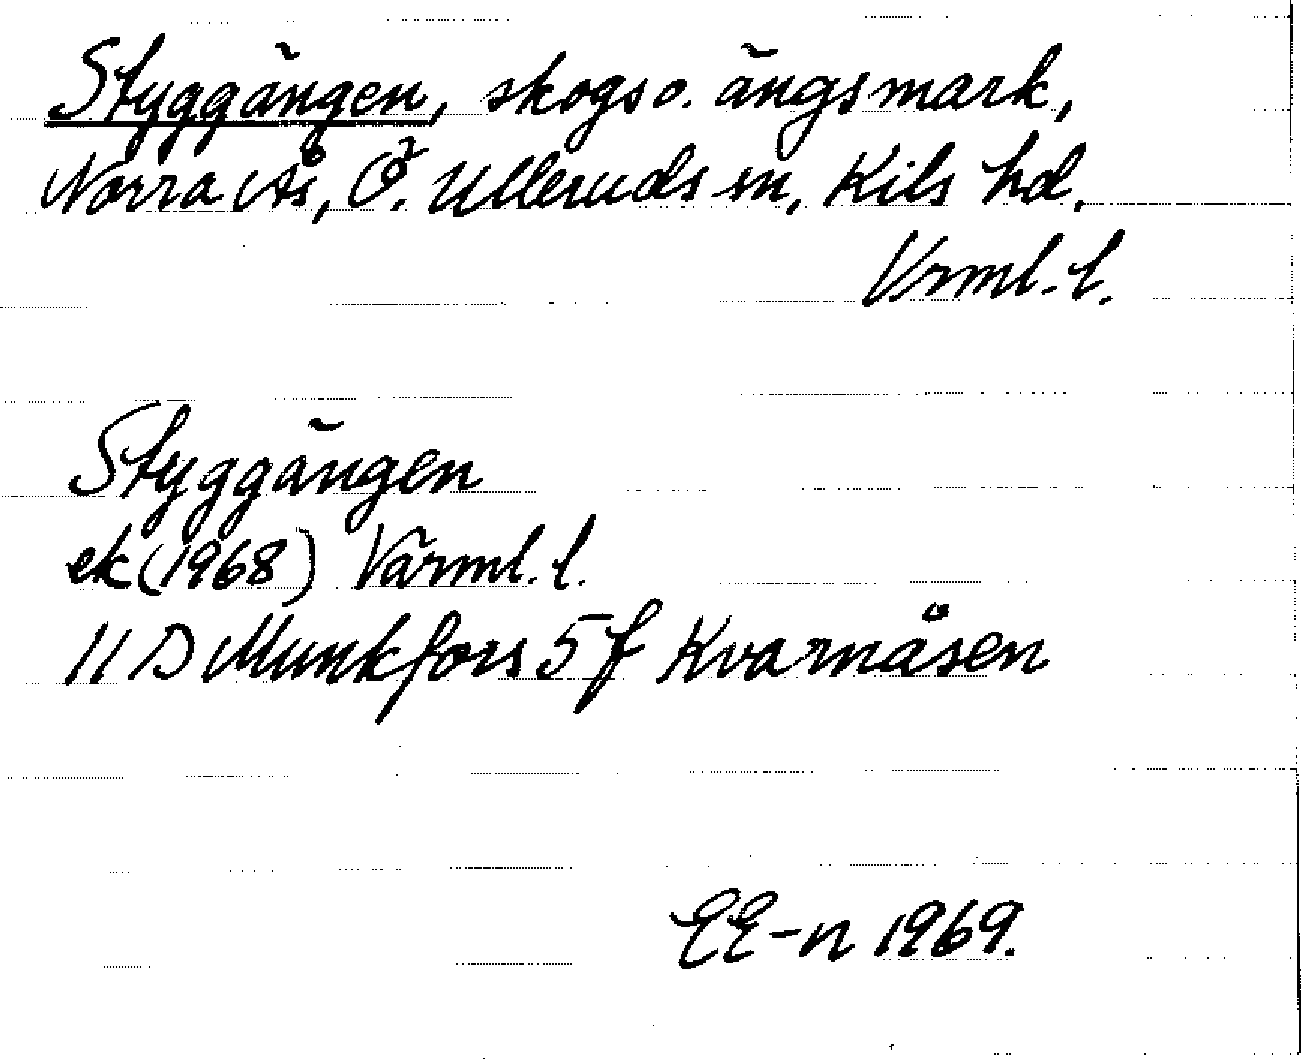 Styggängen, skogs o. ängsmark,
Norra Ås, Ö. Ulleruds sn, Kils hd.
Vrml. l.
Styggängen
ek (1968) Värml. l.
11 D Munkfors 5 f Kvarnåsen
EE-n 1969.